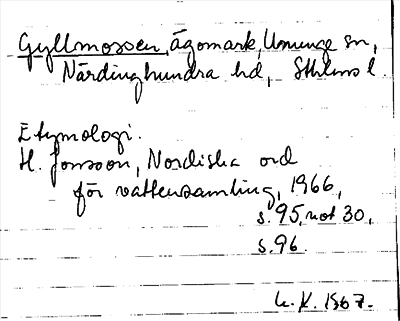 Gyllmossen, ägomark, Ununge sn,
Närdinghundra hd, Sthlms l.
Etymologi.
H. Jonsson, Nordiska ord
för vattensamling, 1966,
s. 95, not 30,
s. 96.
L. K. 1967.